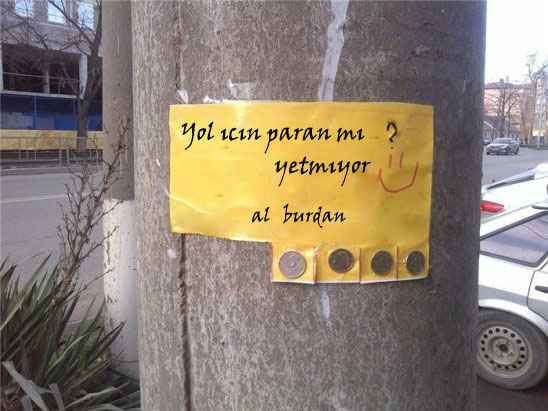 Yol ıcın paran mı ?
yetmıyor
al burdan